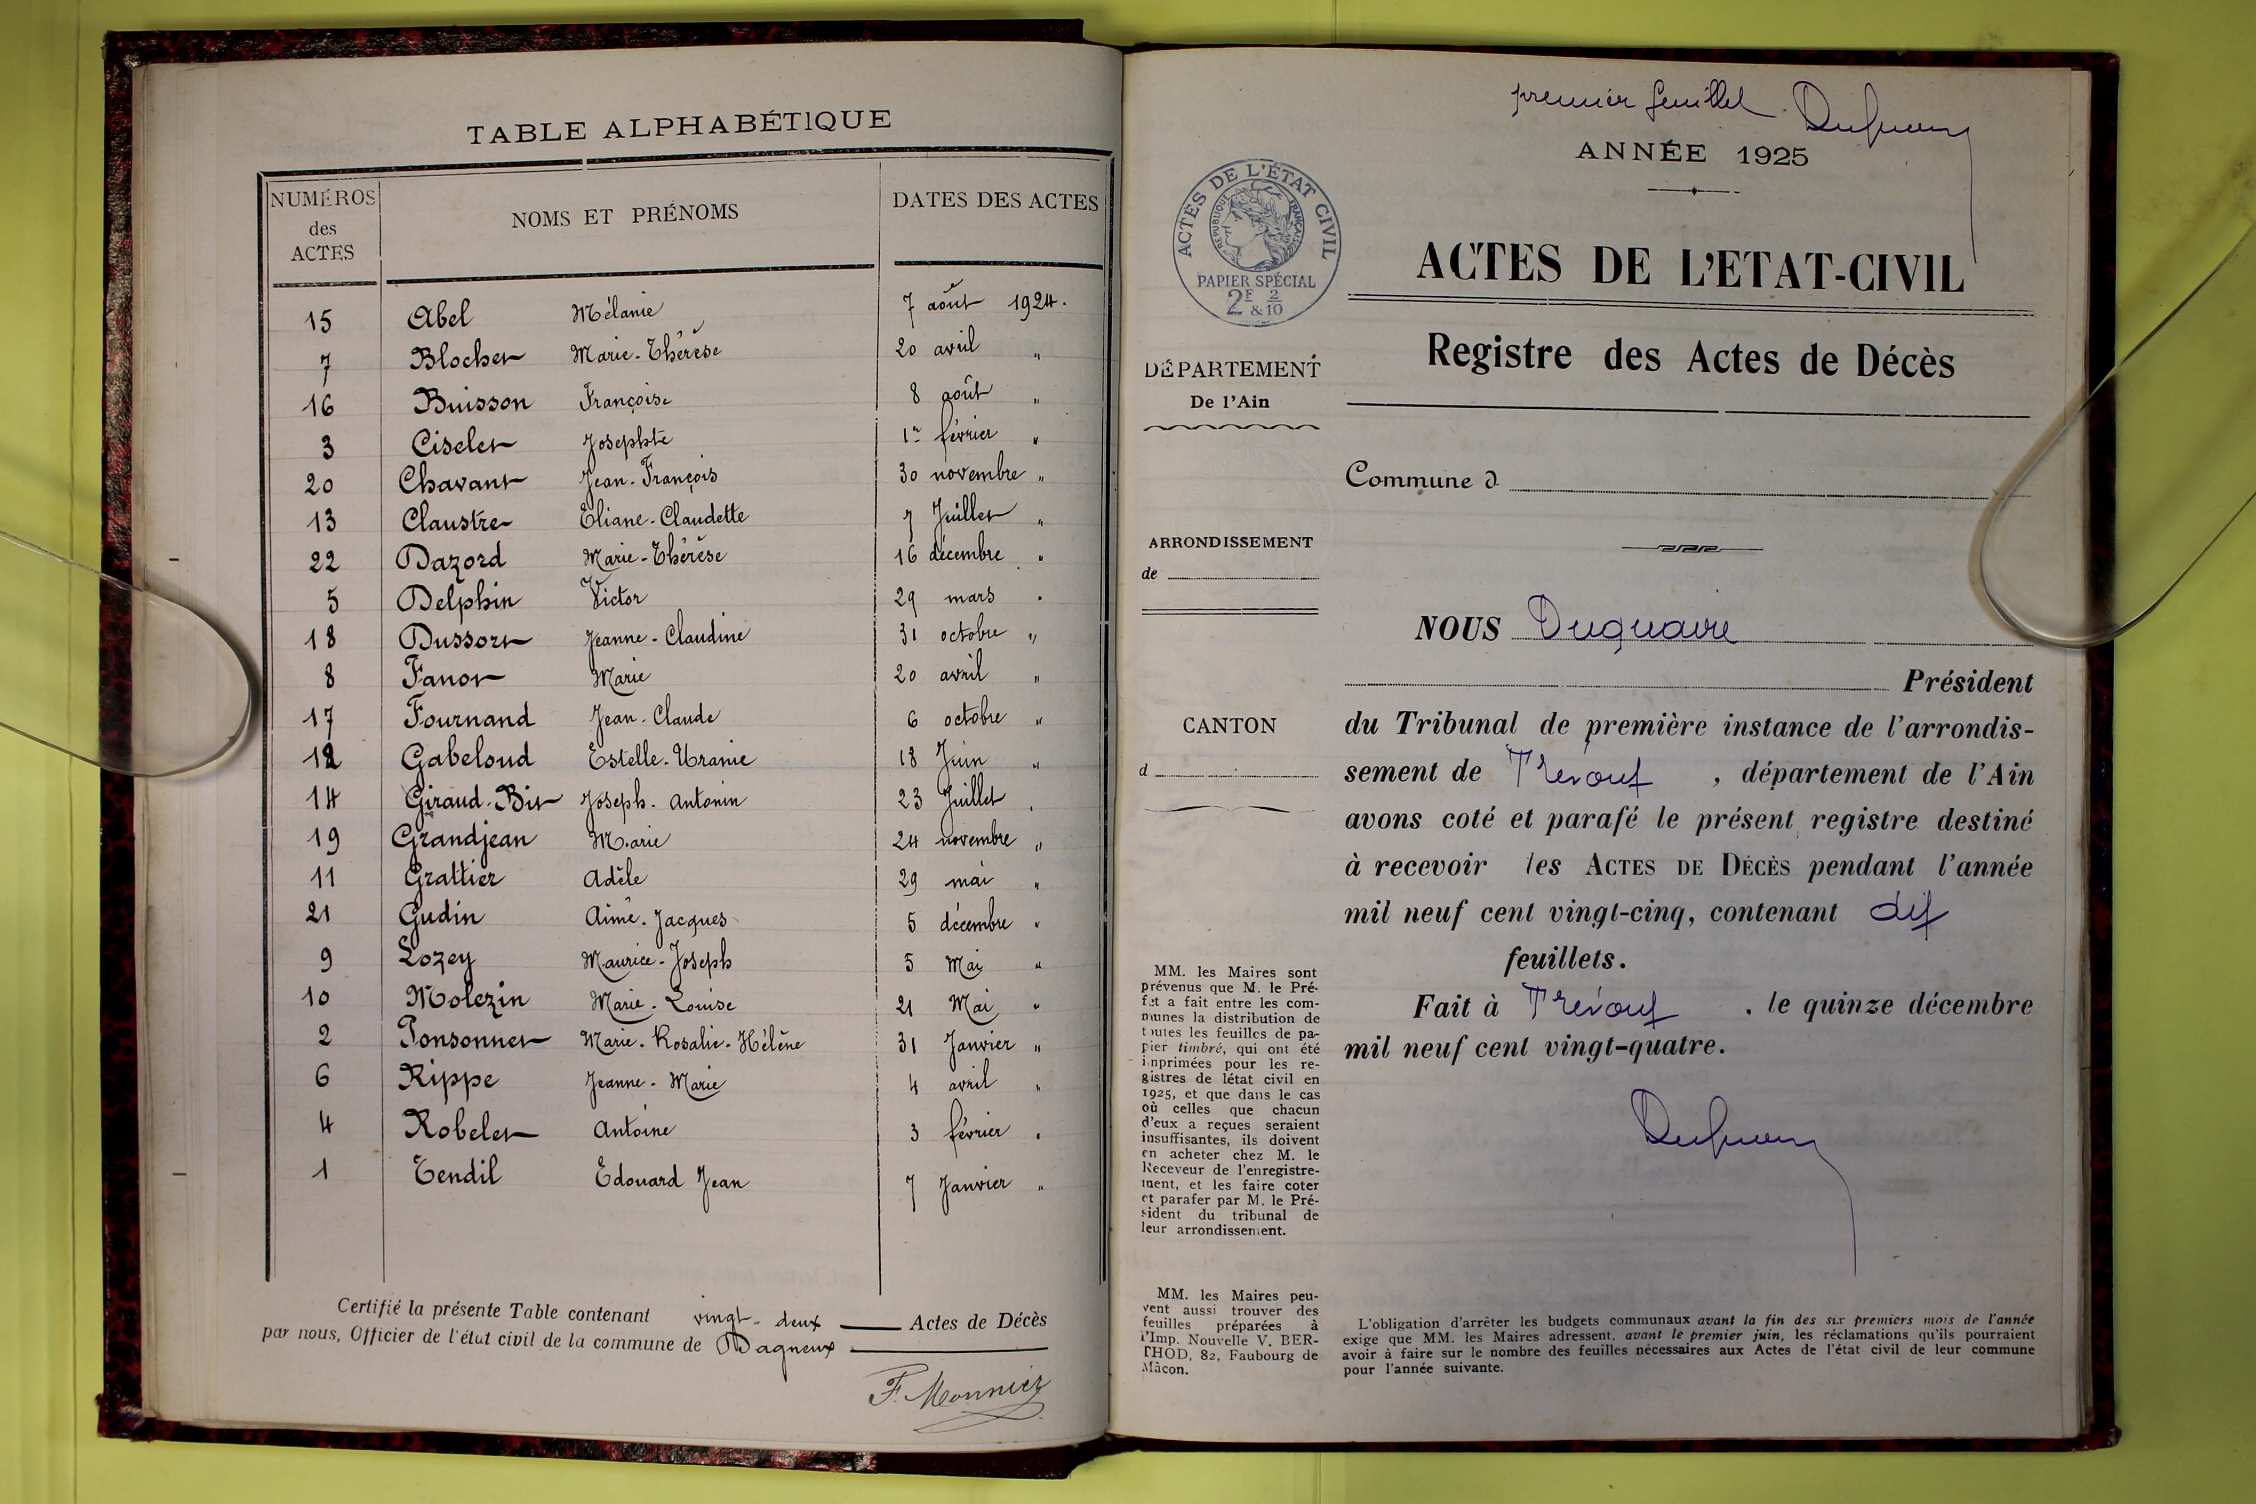 TABLE ALPHABÉTIQUE
NUMÉROS des ACTES NOMS ET PRÉNOMS DATES DES ACTES
15 Abel Mélanie 7 août 1924.
7 Blochet Marie-Thérèse 20 avril "
16 Buisson Françoise 8 août "
3 Ciselet Josephte 1er février "
20 Chavant Jean-François 30 novembre "
13 Claustre Eliane-Claudette 7 Juillet "
22 Dazord Marie-Thérèse 16 décembre "
5 Delphin Victor 29 mars "
18 Dussort Jeanne-Claudine 31 octobre "
8 Fanot Marie 20 avril "
17 Fournand Jean-Claude 6 octobre "
12 Gabeloud Estelle-Uranie 18 Juin "
14 Giraud-Bit Joseph-Antonin 23 Juillet "
19 Grandjean Marie 24 novembre "
11 Grattier Adèle 29 mai "
21 Gudin Aimé-Jacques 5 décembre "
9 Lozey Maurice-Joseph 5 Mai "
10 Molezin Marie-Louise 21 Mai "
2 Ponsonnet Marie-Rosalie-Hélène 31 Janvier "
6 Rippe Jeanne-Marie 4 avril "
4 Robelet Antoine 3 février "
1 Tendil Edouard Jean 7 Janvier "
Certifié la présente Table contenant vingt-deux Actes de Décès
par nous, Officier de l'état civil de la commune de Dagneux
F. Monnier
premier feuillet
ANNÉE 1925
ACTES DE L'ÉTAT CIVIL
RÉPUBLIQUE FRANÇAISE
PAPIER SPÉCIAL
2F & 2/10
ACTES DE L'ETAT-CIVIL
Registre des Actes de Décès
DÉPARTEMENT
De l'Ain
Commune d
ARRONDISSEMENT
de
CANTON
d
NOUS Duquaire
Président
du Tribunal de première instance de l'arrondis-
sement de Trévoux, département de l'Ain
avons coté et parafé le présent registre destiné
à recevoir les ACTES DE DÉCÈS pendant l'année
mil neuf cent vingt-cinq, contenant dix
feuillets.
Fait à Trévoux, le quinze décembre
mil neuf cent vingt-quatre.
MM. les Maires sont
prévenus que M. le Pré-
fet a fait entre les com-
munes la distribution de
toutes les feuilles de pa-
pier timbré, qui ont été
imprimées pour les re-
gistres de létat civil en
1925, et que dans le cas
où celles que chacun
d'eux a reçues seraient
insuffisantes, ils doivent
en acheter chez M. le
Receveur de l'enregistre-
ment, et les faire coter
et parafer par M. le Pré-
sident du tribunal de
leur arrondissement.
MM. les Maires peu-
vent aussi trouver des
feuilles préparées à
l'Imp. Nouvelle V. BER-
THOD, 82, Faubourg de
Mâcon.
L'obligation d'arrêter les budgets communaux avant la fin des six premiers mois de l'année
exige que MM. les Maires adressent, avant le premier juin, les réclamations qu'ils pourraient
avoir à faire sur le nombre des feuilles nécessaires aux Actes de l'état civil de leur commune
pour l'année suivante.